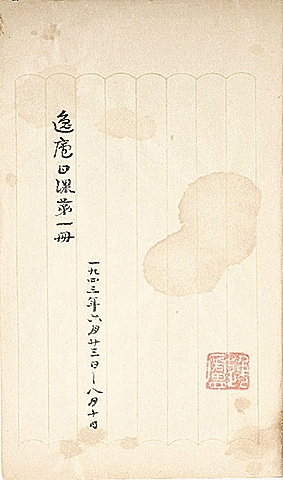 逸庵日課第一冊
一九四三年六月廿三日—八月十日